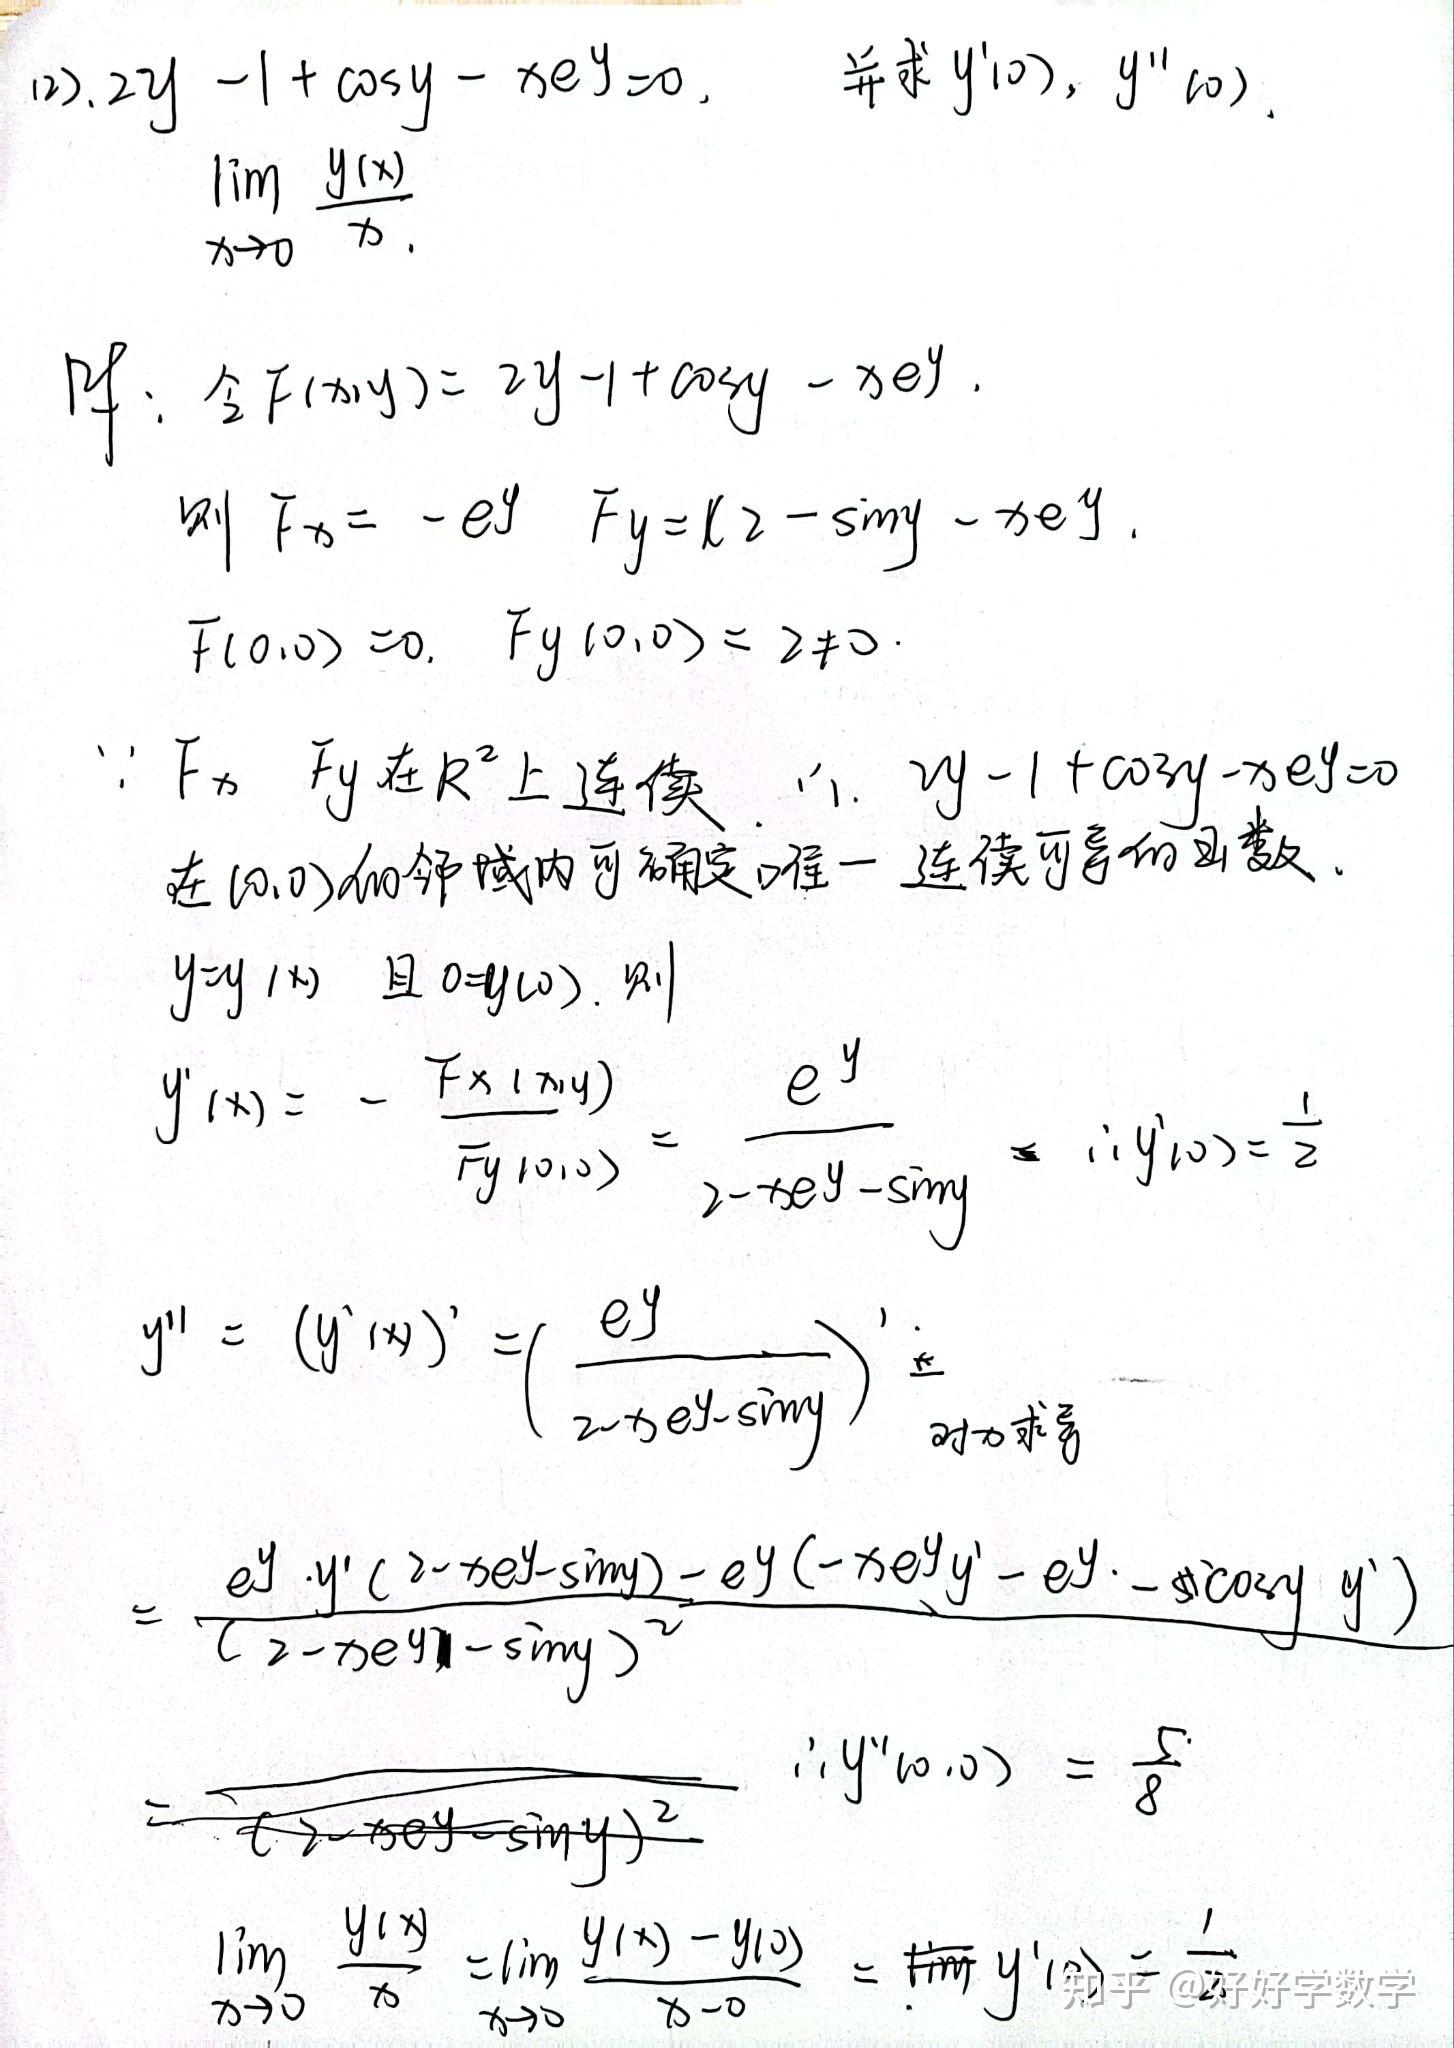 (2). 2y -1 + cosy - xe^y = 0. 并求 y'(0), y''(0).
lim_{x→0} y(x)/x.
解: 令 F(x,y) = 2y -1 + cosy - xe^y.
则 Fx = -e^y Fy = 2 - siny - xe^y.
F(0,0) = 0. Fy(0,0) = 2 ≠ 0.
∵ Fx Fy 在 R² 上连续. ∴ 2y - 1 + cosy - xe^y = 0
在(0,0)的邻域内可确定唯一 连续可导的函数.
y = y(x) 且 0 = y(0). 则
y'(x) = - Fx(x,y)/Fy(0,0) = e^y/(2-xe^y-siny) ∴ y'(0) = 1/2
y'' = (y'(x))' = (e^y/(2-xe^y-siny))'
对x求导
= [e^y·y'(2-xe^y-siny) - e^y(-xe^y y' - e^y· - cosy y')]/(2-xe^y-siny)²
= (2-xe^y-siny)² ∴ y''(0,0) = 5/8
lim_{x→0} y(x)/x = lim_{x→0} (y(x)-y(0))/(x-0) = lim y'(0) = 1/2
知乎 @好好学数学